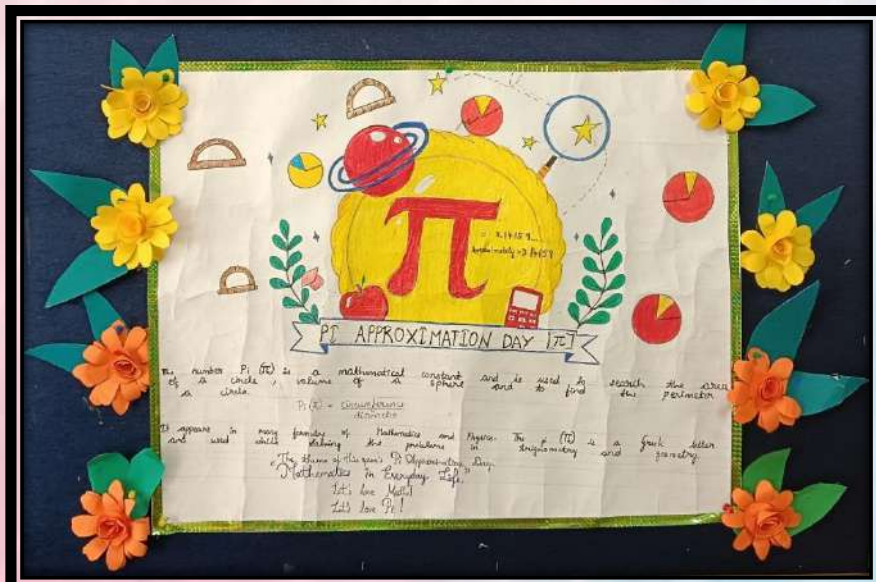 π
= 3.14159...
approximately = 3.14159
PI APPROXIMATION DAY [π]
The number Pi (π) is a mathematical constant and is used to search the area
of a circle, volume of a sphere and to find the perimeter
of a circle.
Pi (π) = circumference
diameter
It appears in many formulas of Mathematics and Physics. The pi (π) is a Greek letter
and used while solving the problems in trigonometry and geometry.
"The theme of this year's Pi Approximation Day
Mathematics In Everyday Life."
Let's love Maths!
Let's love Pi!